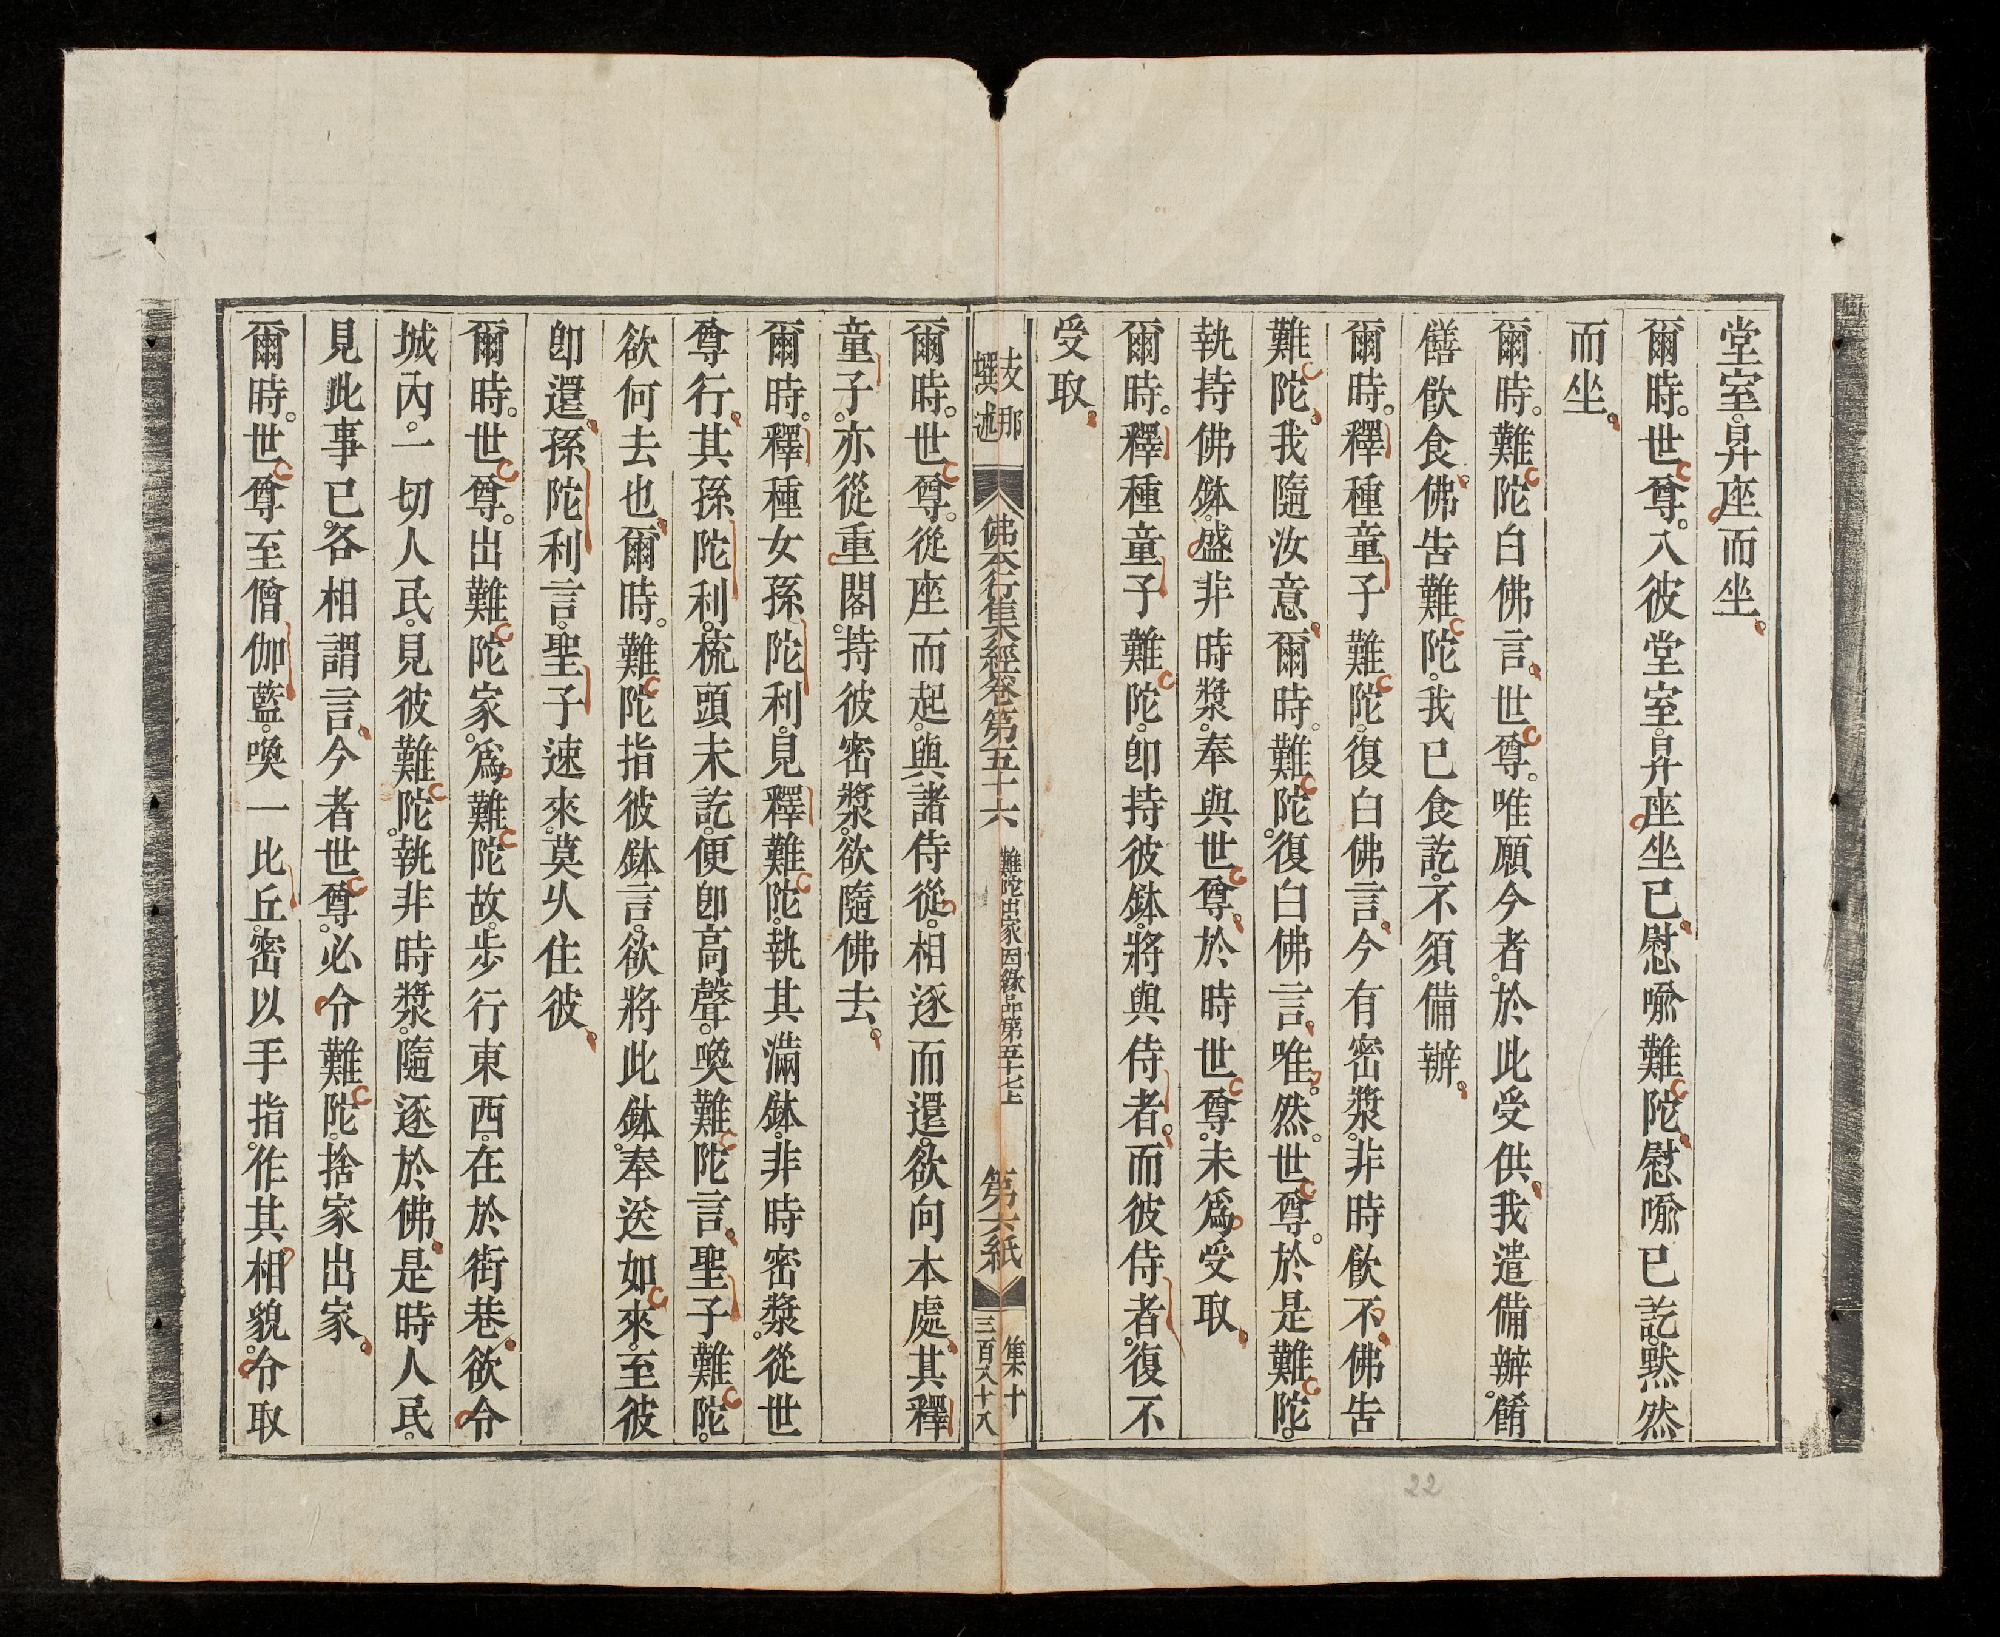 堂室。昇座而坐。
爾時。世尊。入彼堂室。昇座坐已。慰喻難陀。慰喻已訖。默然
而坐。
爾時。難陀白佛言。世尊。唯願今者。於此受供。我遣備辦。餚
饍飲食。佛告難陀。我已食訖。不須備辦。
爾時。釋種童子難陀。復白佛言。今有密漿。非時飲不。佛告
難陀。我隨汝意。爾時。難陀。復白佛言。唯。然。世尊。於是難陀。
執持佛鉢。盛非時漿。奉與世尊。於時世尊。未為受取。
爾時。釋種童子難陀。即持彼鉢。將與侍者。而彼侍者。復不
受取。
支那
撰述
佛本行集經卷第五十六
難陀出家因緣品第五十七上
第六紙
集十
三百八十八
爾時。世尊。從座而起。與諸侍從。相逐而還。欲向本處。其釋
童子。亦從重閣。持彼密漿。欲隨佛去。
爾時。釋種女孫陀利。見釋難陀。執其滿鉢。非時密漿。從世
尊行。其孫陀利。梳頭未訖。便即高聲。喚難陀言。聖子難陀。
欲何去也。爾時。難陀指彼鉢言。欲將此鉢。奉送如來。至彼
即還。孫陀利言。聖子速來。莫久住彼。
爾時。世尊。出難陀家。為難陀故。步行東西。在於街巷。欲令
城內。一切人民。見彼難陀。執非時漿。隨逐於佛。是時人民。
見此事已。各相謂言。今者世尊。必令難陀。捨家出家。
爾時。世尊至僧伽藍。喚一比丘。密以手指。作其相貌。令取
22